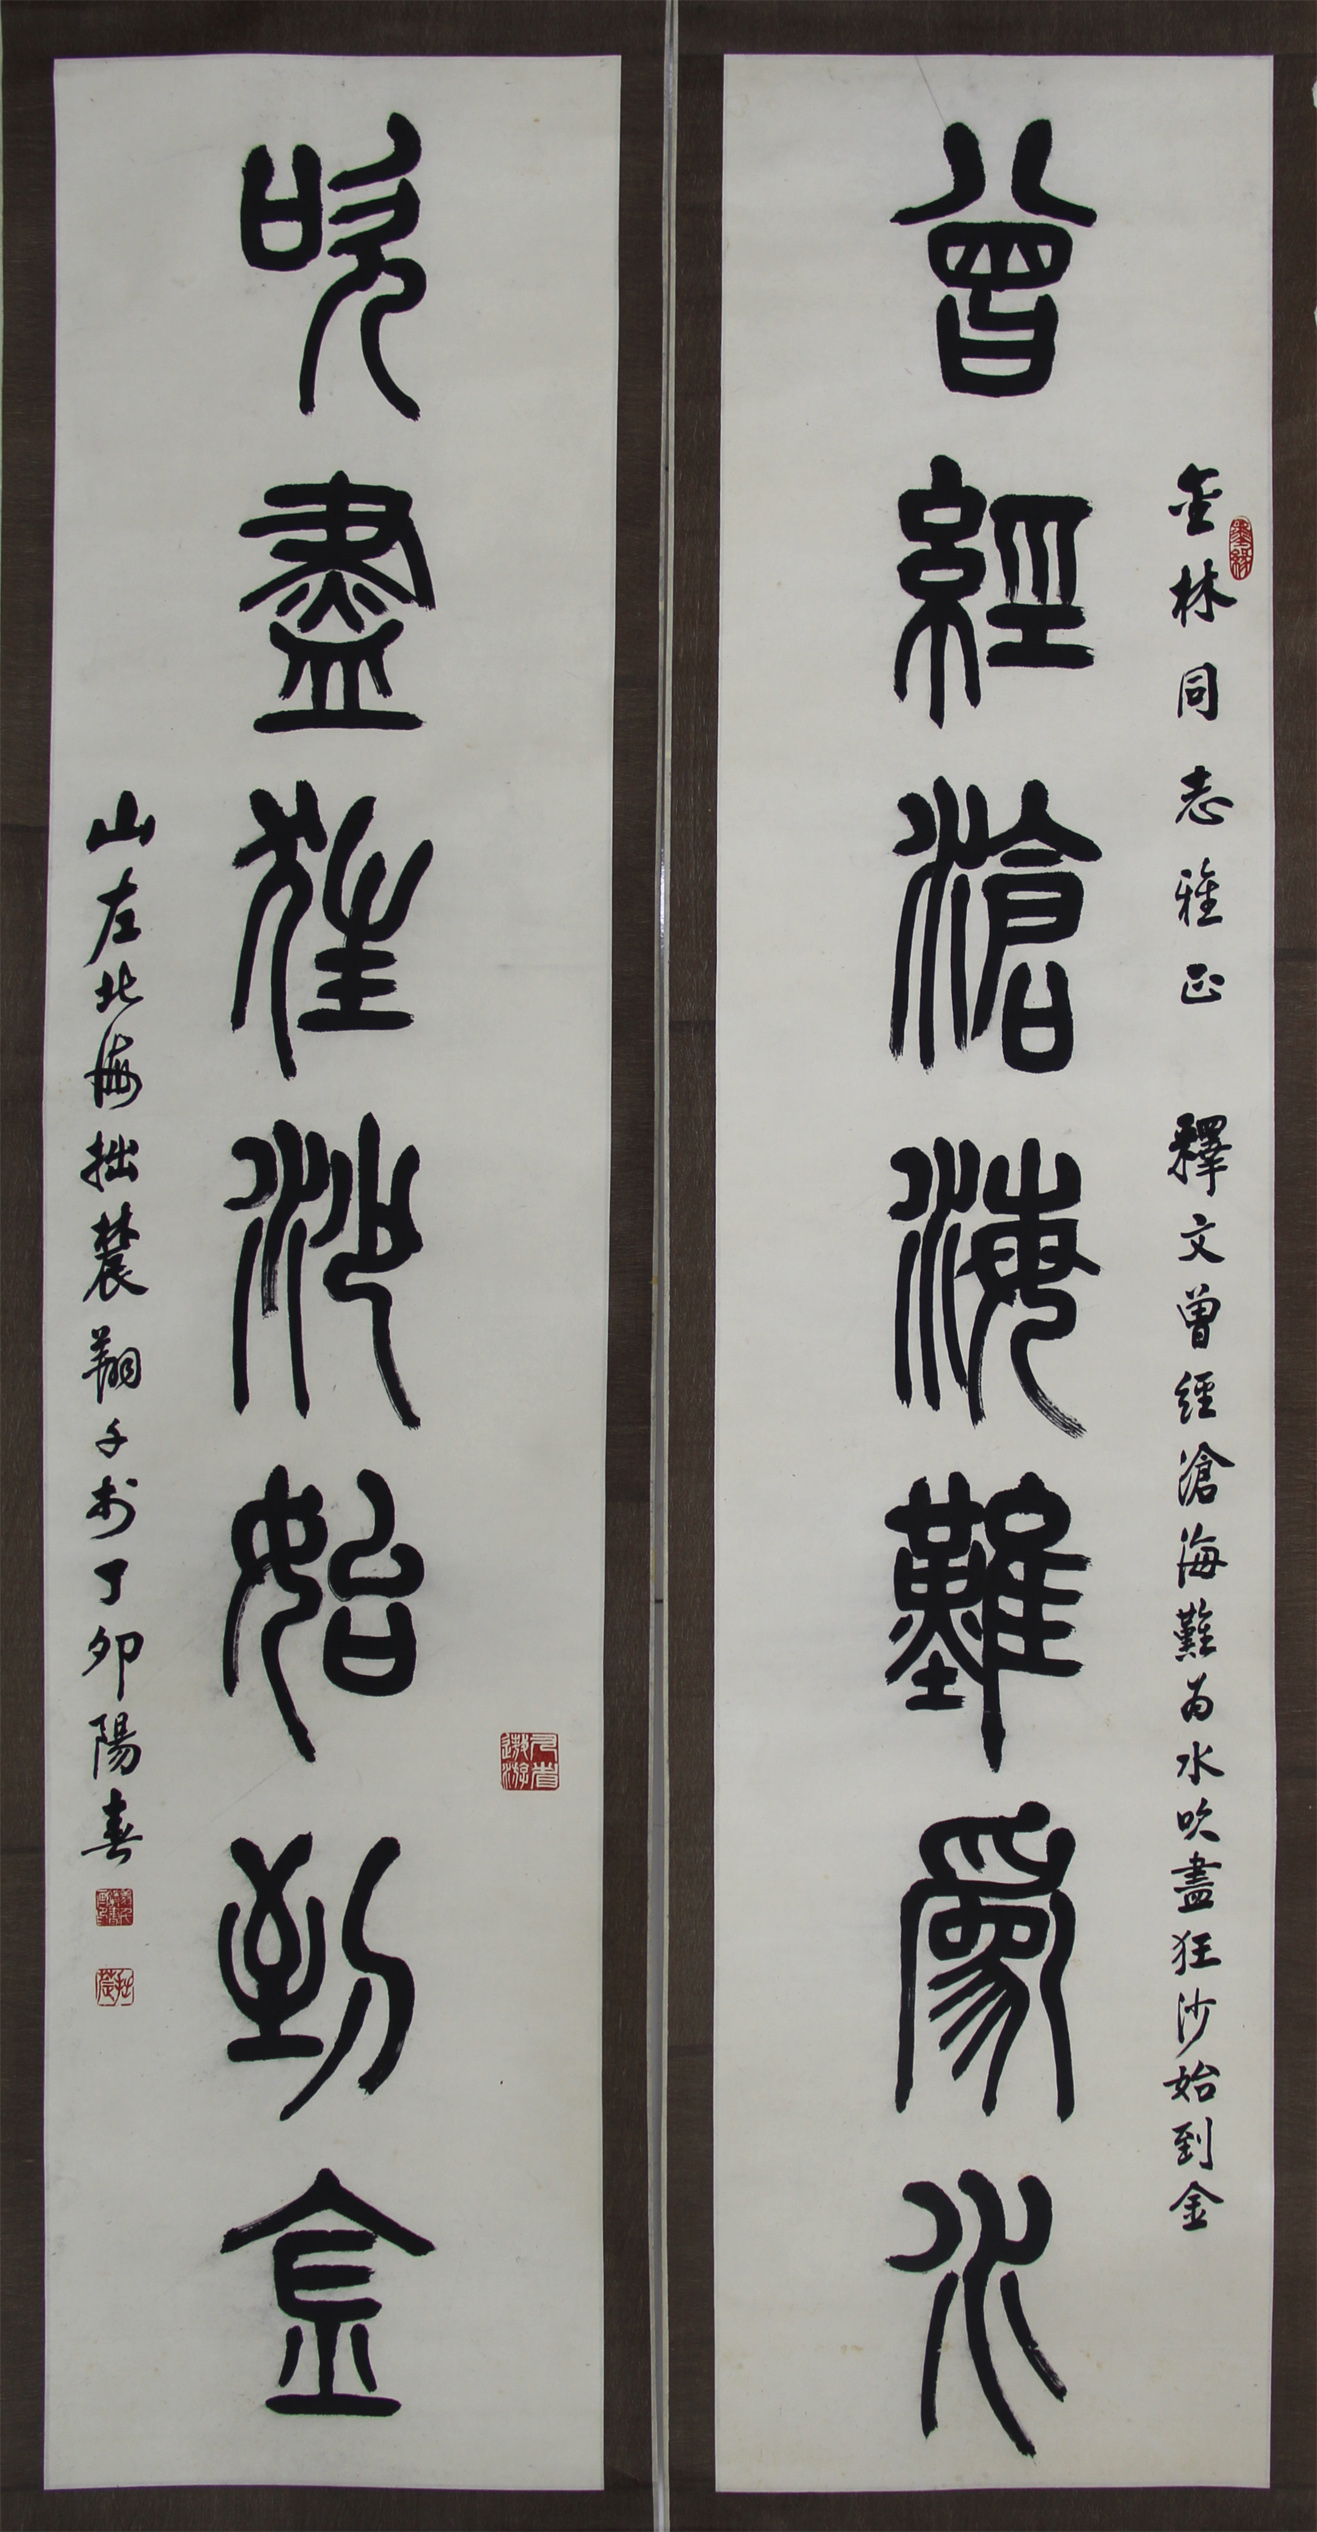 曾經滄海難為水
金林同志雅正 釋文曾經滄海難為水吹盡狂沙始到金
吹盡狂沙始到金
山左北海拙農翔千書於丁卯陽春